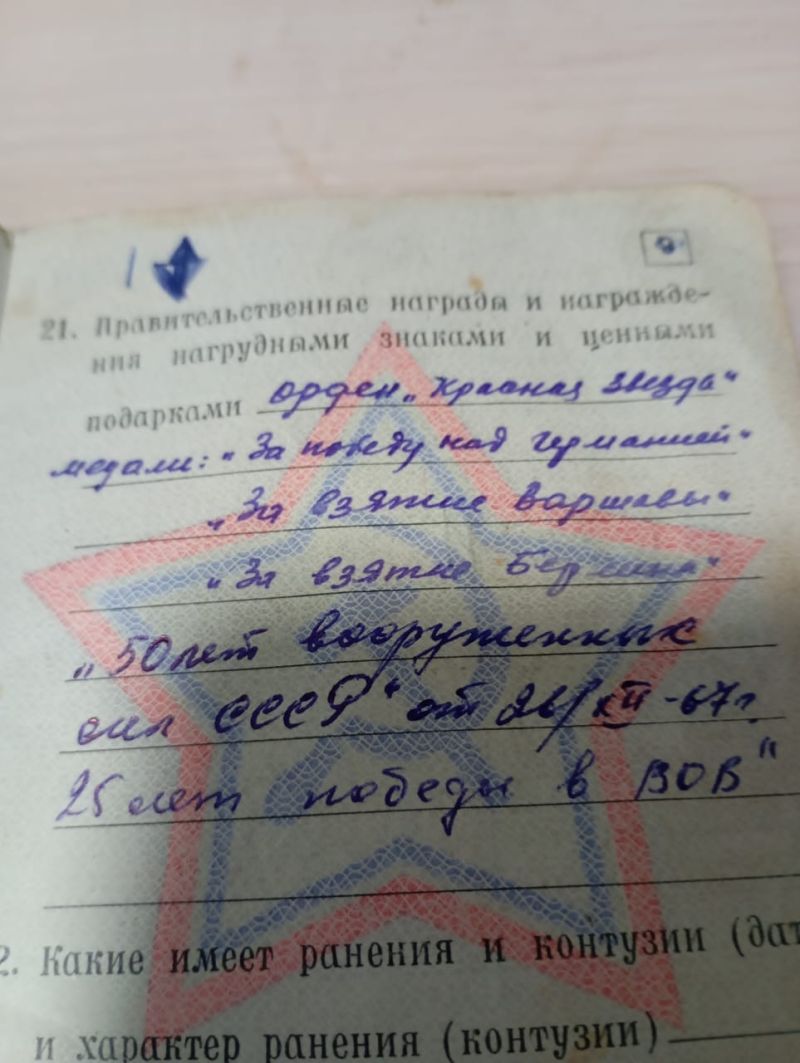 9
21. Правительственные награды и награжде-
ния нагрудными знаками и ценными
подарками орден „Красная Звезда“
медали: „За победу над Германией“
„За взятие Варшавы“
„За взятие Берлина“
„50 лет вооруженных
сил СССР“ от 26/XII-67г.
25 лет победы в ВОВ“
2. Какие имеет ранения и контузии (дат
и характер ранения (контузии)